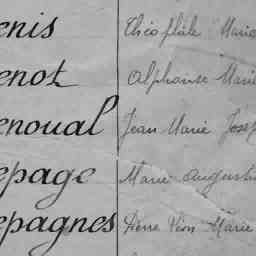 enis Théophile Mario
enot Alphonse Marie
enoual Jean Marie Josep
epage Marie Augusti
epagnes Pierre Léon Marie